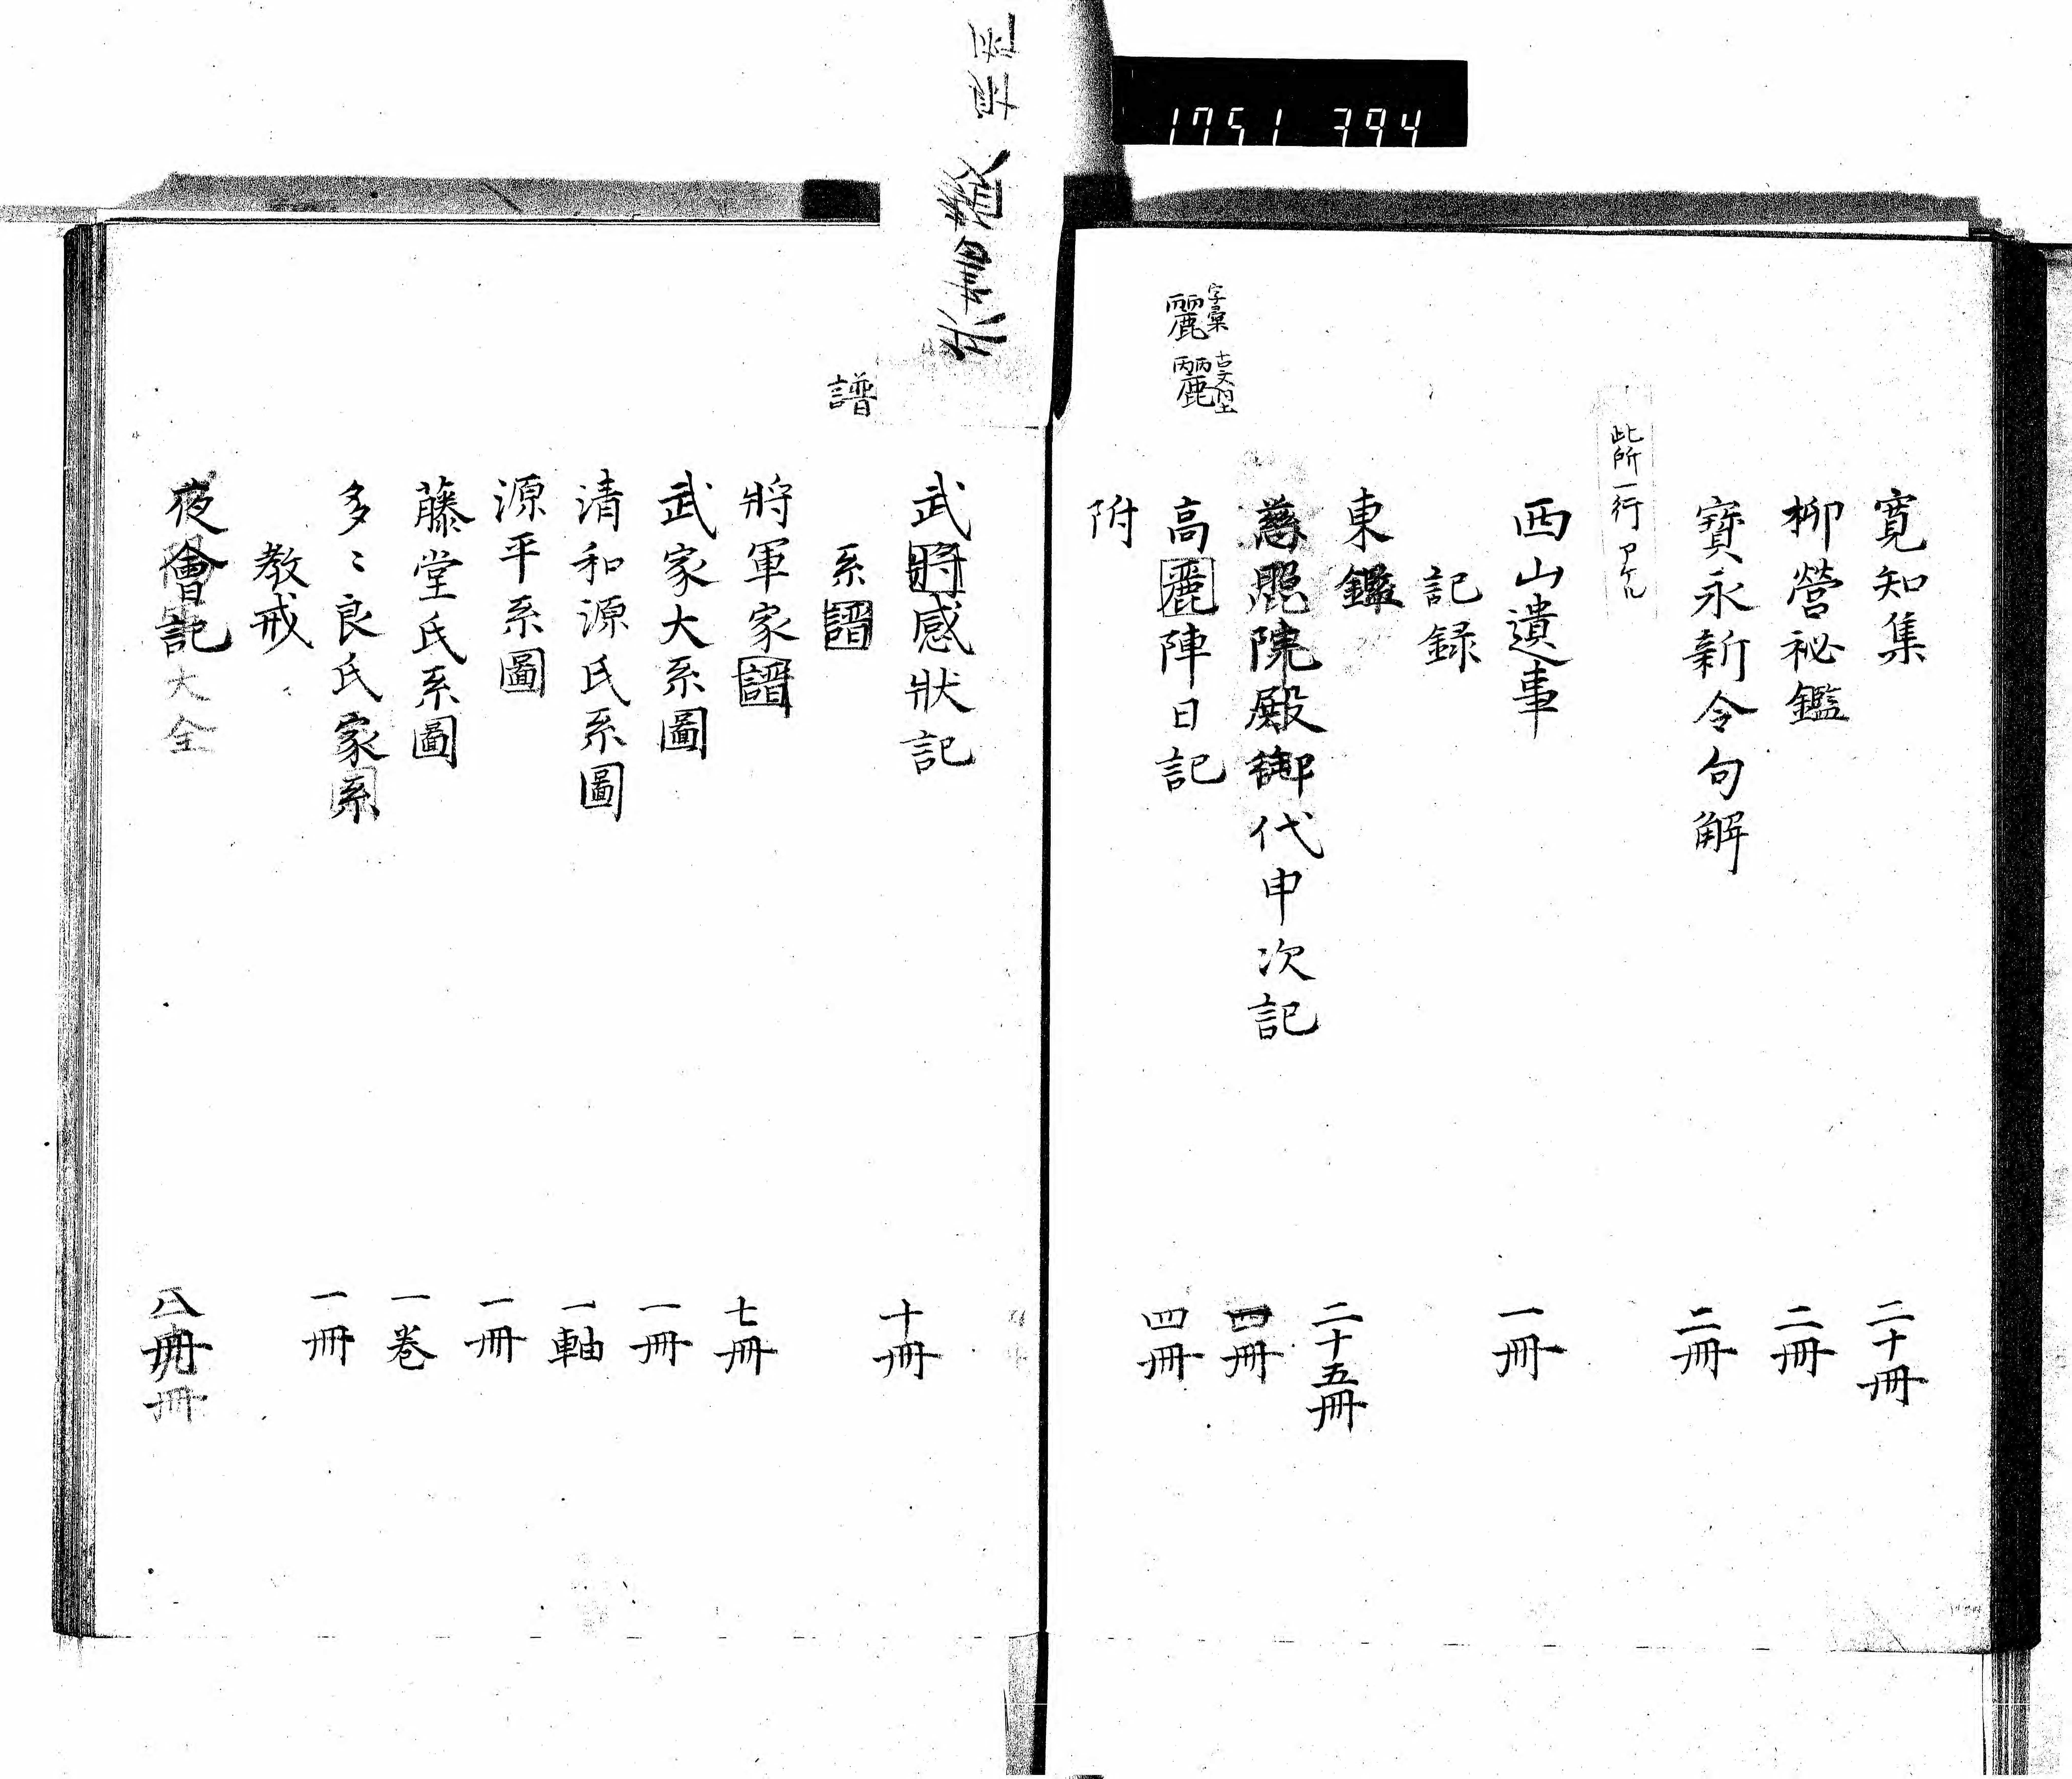 1751 394
寛知集 二十冊
柳營祕鑑 二冊
寶永新令句解 二冊
此所一行アケル
西山遺事 一冊
記録
東鑑 二十五冊
慈照院殿御代申次記 四冊
字彙
麗
古文
麗
高麗陣日記 四冊
附
武將感狀記 十冊
譜
系譜
將軍家譜 七冊
武家大系圖 一冊
清和源氏系圖 一軸
源平系圖 一冊
藤堂氏系圖 一巻
多々良氏家系 一冊
教戒
夜會記大全 八冊